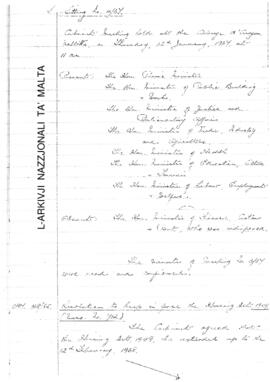 L-ARKIVJI NAZZJONALI TA' MALTA
Sitting No.
Cabinet Meeting held at the Auberge
on Thursday, 12th January, 1967, at
11 am
Present: The Hon. Prime Minister
The Hon. Minister of Public Building
& Works
The Hon. Minister of Justice and
Parliamentary Affairs
The Hon. Minister of Trade, Industry
and Agriculture
The Hon. Minister of Health
The Hon. Minister of Education, Culture
& Tourism
The Hon. Minister of Labour, Employment
& Welfare
Absent: The Hon. Minister of Finance, Customs
& Port, who was indisposed.
The minutes of Meeting No.
were read and confirmed.
Resolution to keep in force the Housing Act, 1949
The Cabinet agreed that
the Housing Act, 1949, be extended up to the
1968.